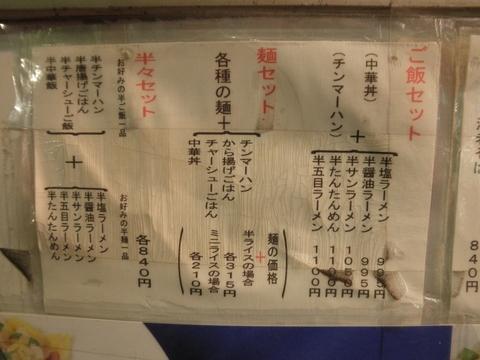 ご飯セット
(中華丼)
(チンマーハン)
+
半塩ラーメン 995円
半醤油ラーメン 995円
半サンラーメン 1050円
半たんたんめん 1100円
半五目ラーメン 1100円
麺セット
各種の麺+
チンマーハン
から揚げごはん
チャーシューごはん
中華丼
麺の価格
+
半ライスの場合
各315円
ミニライスの場合
各210円
半々セット
お好みの半ご飯一品
半チンマーハン
半唐揚げごはん
半チャーシューご飯
半中華飯
+
お好みの半麺一品
半塩ラーメン
半醤油ラーメン
半サンラーメン
半五目ラーメン
半たんたんめん
各840円
840円